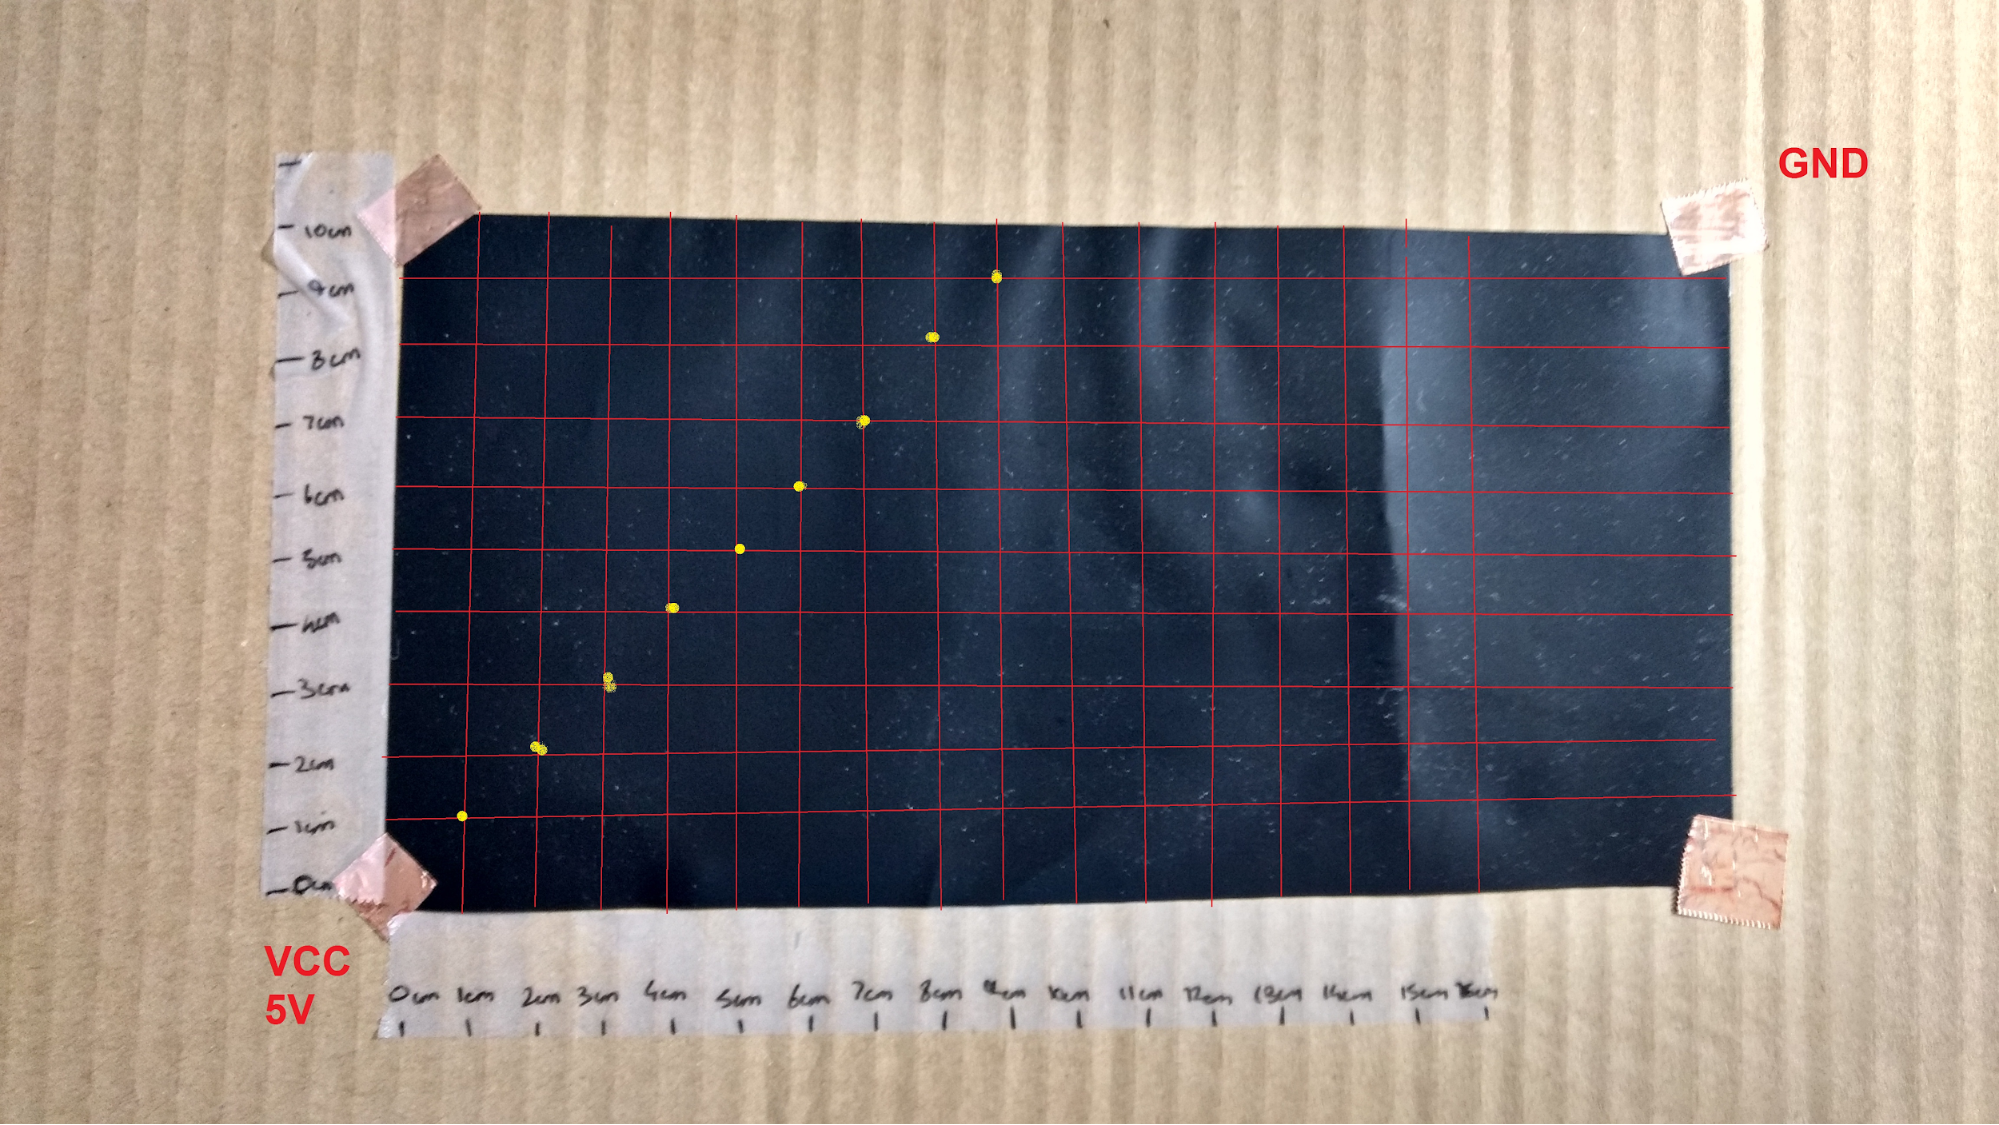 GND
10cm
9cm
8cm
7cm
6cm
5cm
4cm
3cm
2cm
1cm
0cm
VCC
5V
0cm 1cm 2cm 3cm 4cm 5cm 6cm 7cm 8cm 9cm 10cm 11cm 12cm 13cm 14cm 15cm 16cm